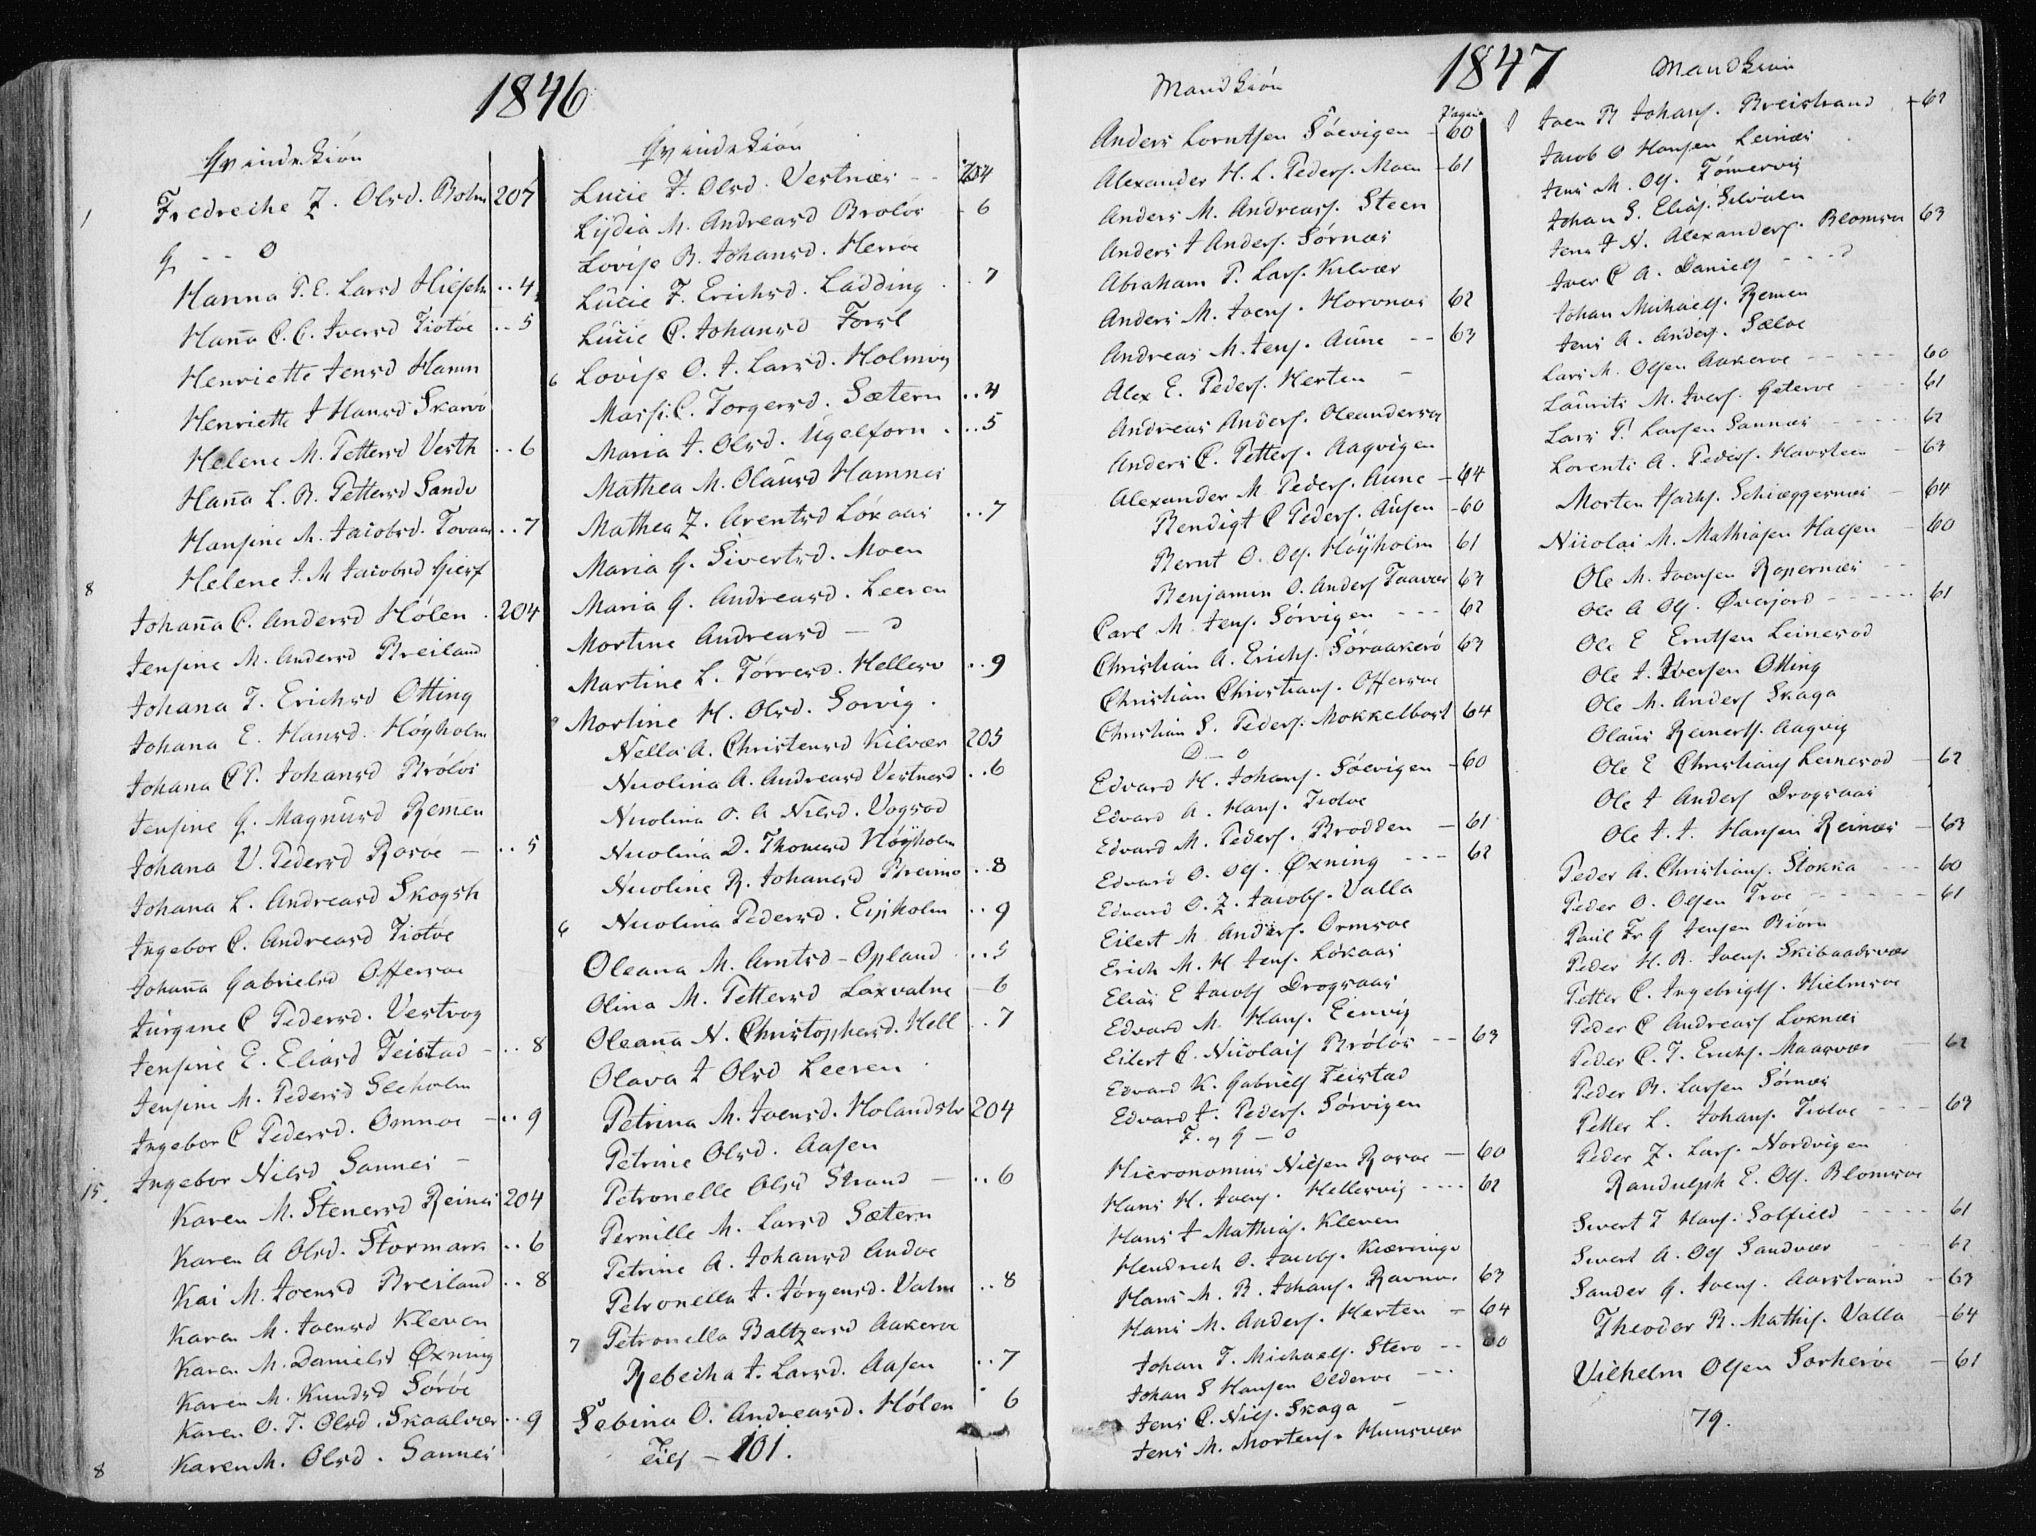 1846
Qvindekiön
Fredreche Z. Olsd. Bolm 207
1
G - - 0
Hanna P. E. Larsd Hiesch .. 4
Hanna C. C. Iversd Tiøtøe .. 5
Henriette Jensd Hamn
Henriette J Hansd Skarvø
Helene M. Pettersd Vesth .. 6
Hanna L. B. Pettersd Sandv
Hansine M. Jacobsd. Tovaas .. 7
Helene J. M Jacobsd Gierf
8
Johanna C. Andersd Hölen . 204
Jensine M. Andersd Breiland
Johana J. Erichsd Otting
Johana E. Hansd. Høyholm
Johana C P. Johansd Bröløs
Jensine G. Magnusd Remen
Johana V. Pedersd Rosøe - .. 5
Johana L. Andreasd Skogsh
Ingebor C. Andreasd Tiøtøe
Johanna Gabrielsd Offersøe
Jürgine C Pedersd. Vestvog
Jensine E. Eliasd Teistad - .. 8
Jensine M. Pedersd Seeholm
Ingebor C Pedersd. Omnøe - .. 9
Ingebor Nilsd Sannes -
15.
Karen M. Stenersd Reines 204
Karen A Olsd. Stormark .. 6
Kai M. Joensd Breiland .. 8
Karen M. Joensd Kleven
Karen M. Danielsd Øxning
Karen M. Knudsd Sørøe
Karen O. T. Olsd. Skaalvær .. 9
Karen M. Olsd. Sannes
8
Qvindekiön
Lucie F. Olsd. Vestnæs - - 204
Lydia M. Andreasd Broløs - 6
Lovise B. Johansd. Herrøe
Lucie F. Erichsd. Ladding . . 7
Lucie C. Johansd Forsl
6 Lovise O. J. Larsd. Holmvig
Massi C. Torgersd. Sætern .. 4
Maria J. Olsd. Ugelforn . .. 5
Mathea M. Olausd Hamnes
Mathea Z. Arentsd Løkaas .. 7
Maria G. Sivertsd. Moen
Maria G. Andreasd. Leeren
Mortine Andreasd - 0
Martine L. Törresd. Hellesv .. 9
Mortine H. Olsd. Sørvig .
Nella A. Christensd Kilvær 205
Nicolina A. Andreasd Vestnesd .. 6
Nicolina O. A Nilsd. Vogsod
Nicolina D. Thomesd Høyholm
Nicoline R. Johanesd Breimo .. 8
6 Nicolina Pedersd. Eisholm .. 9
Oleana M. Arntsd - Opland . .. 5
Olina M. Pettersd Laxvalne - 6
Oleana N. Christophersd. Hell .. 7
Olava J Olsd Leeren
Petrina M. Joensd. Holandstr 204
Petrine Olsd. Aasen
Petronelle Olsd Strand - .. 6
Pernille M. Larsd Sætern
Petrine A. Johansd Andøe
Petronella J. Jörgensd. Valm .. 8
7 Petronella Baltzersd Aakerøe
Rebecha J. Larsd. Aasen .. 7
Sebina O. Andreasd. Hölen 6
- 101.
1847
Mandkiön
Pagina
Anders Lorntsen Søevigen - 60
Alexander H. L. Peders. Moen - 61
Anders M. Andreass. Steen
Anders J Anders. Sørnæs
Abraham P. Lars. Kilvær
Anders M. Joens. Horvnæs 62
Andreas M. Jens. Aune -- 63
Alex E. Peders. Herten -
Andreas Anders. Oleandersen
Anders C. Petters. Aagvigen
Alexander M Peders. Aune - 64
Bendigt C Peders. Ausen - 60
Bernt O. Ols. Høyholm 61
Benjamin O. Anders Taavær 63
Carl M. Jens. Sørvigen - - - 62
Christian A. Erichs. Søraakerø 63
Christian Christians. Offersøe
Christian S. Peders. Mokkelbost 64
D - 0
Edvard H. Johans. Søevigen - 60
Edvard A. Hans. Tiøtøe
Edvard M. Peders. Brodden - 61
Edvard O. Ols. Øxning - - - 62
Edvard O. Z. Jacobs. Valla
Eilert M. Anders. Ormsøe
Erich M. H Jens. Løkaas
Elias E Jacobs Drogsaas
Edvard M. Hans. Eenvig
Eilert C. Nicolais Bröløs -- 63
Edvard K. Gabriels Teistad
Edvard J. Peders. Sørvigen
F. og G - 0
Hieronomius Nilsen Rosøe - 60
Hans H. Joens. Hellesvig - - - 62
Hans J Mathias. Kleven
Hendrich O. Jacobs. Kieringø
Hans M. B. Johans. Ravnø. 63
Hans M. Anders. Herten - 64
Johan P. Michaels. Sterø -- 60
Johan S Hansen Olderøe ---
Jens C. Nils. Skaga -
Jens M. Mortens. Hunsvær
Mandkiön
Joen B Johans. Breistrand - 62
Jacob O Hansen Leinæs
Jens M. Ols. Tømervig
Johan S. Elias. Selvalen
Jens J N. Alexanders. Blomsøe 63
Iver C A. Daniels - - - 0
Johan Michaels. Remen
Jens A. Anders. Sæløe
Lars M. Olsen Aakerøe - - - - - 60
Lauritz M. Ivers. Geterøe - - - 61
Lars P. Larsen Sannæs - - - - 62
Lorents A. Peders. Havsteen - 63
Morten Isachs. Schiæggesnæs - 64
Nicolai M. Mathiasen Halsen - 60
Ole M. Joensen Rapernæs - -
Ole A Ols. Øverjord - - - - - - 61
Ole E Erntsen Leinesod
Ole J. Iversen Otting
Ole M. Anders Skaga
Olaus Reinerts. Aagvig
Ole E Christians Leinesod - 62
Ole J Anders Drogsaas
Ole J. J. Hansen Reinæs - 63
Peder A. Christians. Stokka - - - 60
Peder O. Olsen Trøe - - - - - - 61
Paul Fr G Jensen Biørn
Peder H. B. Joens. Skibaadsvær
Petter C. Ingebrigts. Hielmsøe
Peder C Andreass Loknæs
Peder C. T. Erichs. Maasvær - 62
Peder B. Larsen Sørnæs
Petter L. Johans. Tiøtøe - - - 63
Peder Z. Lars. Nordvigen
Randulph E. Ols. Blomsøe
Sivert T Hans. Solfield - - - - - 61
Sivert A. Ols Sandvær - - - 62
Sander G. Joens. Aarstrand - 63
Theodor B. Mathis. Valla - 64
Vilhelm Olsen Sørherøe - 61
79.